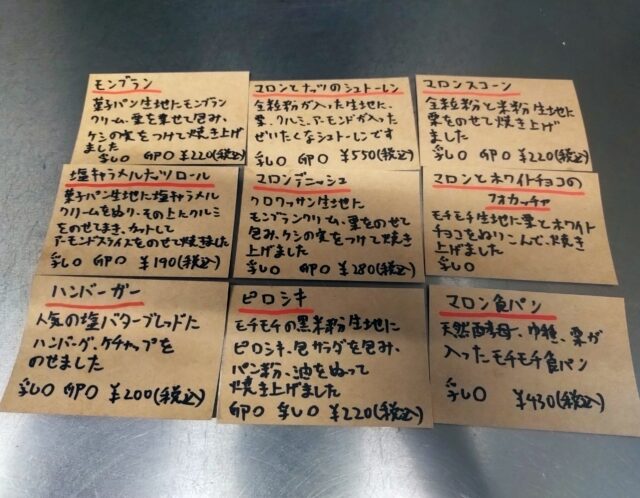 モンブラン
菓子パン生地にモンブラン
クリーム、栗を乗せて包み、
ケシの実をつけて焼き上げ
ました
乳し〇 GP〇 ¥220(税込)
マロンとナッツのシュトーレン
全粒粉が入った生地に、
栗、クルミ、アーモンドが入った
ぜいたくなシュトーレンです
乳し〇 GP〇 ¥550(税込)
マロンスコーン
全粒粉と米粉生地に
栗をのせて焼き上げ
ました
乳し〇 GP〇 ¥220(税込)
塩キャラメルナッツロール
菓子パン生地に塩キャラメル
クリームをぬり、その上にクルミ
をのせてまき、カットして
アーモンドスライスをのせて焼きました
乳し〇 GP〇 ¥190(税込)
マロンデニッシュ
クロワッサン生地に
モンブランクリーム、栗をのせて
包み、ケシの実をつけて焼き
上げました
乳し〇 GP〇 ¥280(税込)
マロンとホワイトチョコの
フォカッチャ
モチモチ生地に栗とホワイト
チョコをぬりこんで、焼き
上げました
乳し〇
ハンバーガー
人気の塩バターブレッドに
ハンバーグ、ケチャップを
のせました
乳し〇 GP〇 ¥200(税込)
ピロシキ
モチモチの黒米粉生地に
ピロシキ、包サラダを包み、
パン粉、油をぬって
焼き上げました
GP〇 乳し〇 ¥220(税込)
マロン食パン
天然酵母、中種、栗が
入ったモチモチ食パン
乳し〇 ¥430(税込)